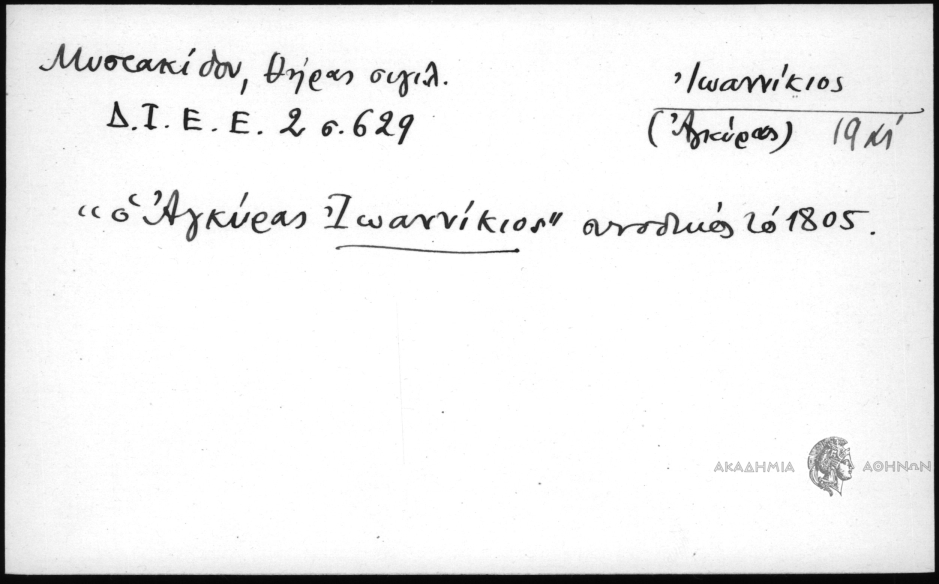 Μυστακίδου, Θήρας σιγιλ.
Δ.Ι.Ε.Ε. 2 σ. 629
Ἰωαννίκιος
(Ἀγκύρας) 19
"ὁ Ἀγκύρας Ἰωαννίκιος" συνοδικός τό 1805.
ΑΚΑΔΗΜΙΑ ΑΘΗΝΩΝ